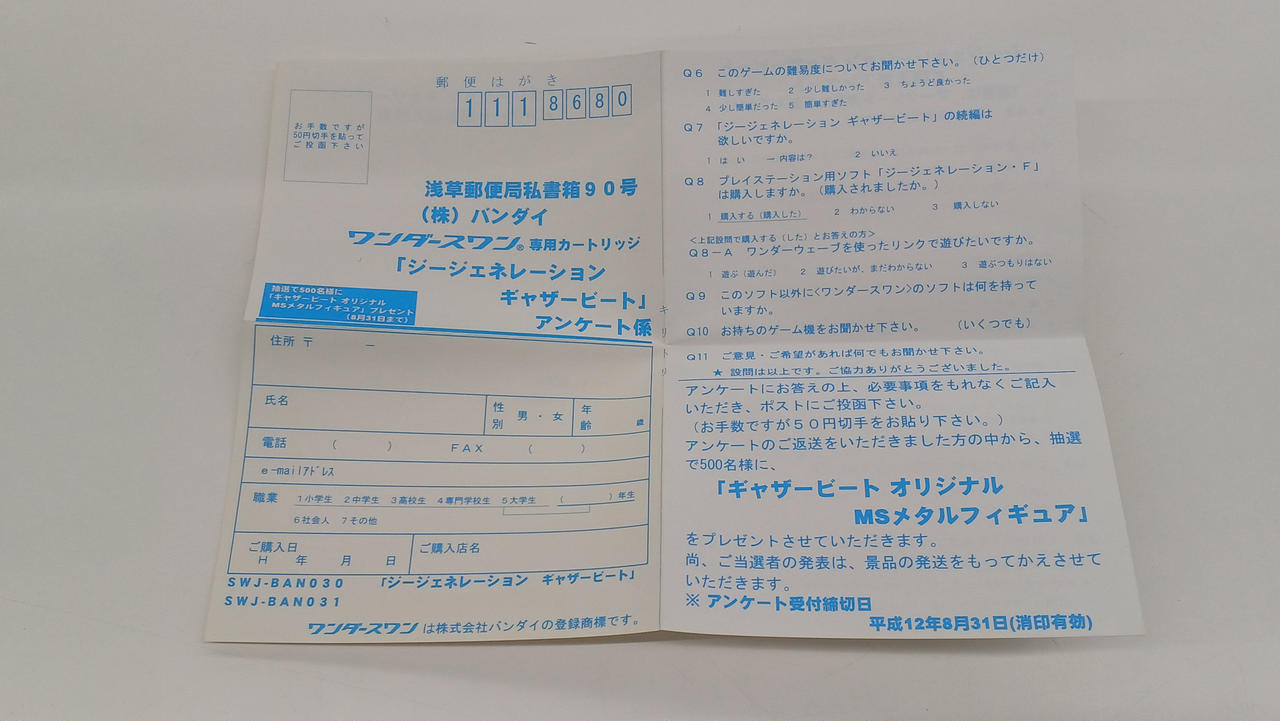 郵便はがき
111 8680
お手数ですが
50円切手を貼って
ご投函下さい
浅草郵便局私書箱90号
（株）バンダイ
ワンダースワン®専用カートリッジ
「ジージェネレーション
ギャザービート」
アンケート係
抽選で500名様に
「ギャザービート オリジナル
MSメタルフィギュア」プレゼント
（8月31日まで）
キリトリ
住所 〒　　―
氏名
性別　男・女
年齢　歳
電話　（　　）　FAX　（　　）
e-mailアドレス
職業　1小学生　2中学生　3高校生　4専門学校生　5大学生　（　　）年生
6社会人　7その他
ご購入日
H　年　月　日
ご購入店名
SWJ-BAN030　「ジージェネレーション　ギャザービート」
SWJ-BAN031
ワンダースワンは株式会社バンダイの登録商標です。
Q6　このゲームの難易度についてお聞かせ下さい。（ひとつだけ）
1　難しすぎた　2　少し難しかった　3　ちょうど良かった
4　少し簡単だった　5　簡単すぎた
Q7　「ジージェネレーション ギャザービート」の続編は
欲しいですか。
1　はい　→内容は？　2　いいえ
Q8　プレイステーション用ソフト「ジージェネレーション・F」
は購入しますか。（購入されましたか。）
1　購入する（購入した）　2　わからない　3　購入しない
＜上記設問で購入する（した）とお答えの方＞
Q8-A　ワンダーウェーブを使ったリンクで遊びたいですか。
1　遊ぶ（遊んだ）　2　遊びたいが、まだわからない　3　遊ぶつもりはない
Q9　このソフト以外に<ワンダースワン>のソフトは何を持って
いますか。
Q10　お持ちのゲーム機をお聞かせ下さい。　（いくつでも）
Q11　ご意見・ご希望があれば何でもお聞かせ下さい。
★ 設問は以上です。ご協力ありがとうございました。
アンケートにお答えの上、必要事項をもれなくご記入
いただき、ポストにご投函下さい。
（お手数ですが５０円切手をお貼り下さい。）
アンケートのご返送をいただきました方の中から、抽選
で500名様に、
「ギャザービート オリジナル
MSメタルフィギュア」
をプレゼントさせていただきます。
尚、ご当選者の発表は、景品の発送をもってかえさせて
いただきます。
※ アンケート受付締切日
平成12年8月31日(消印有効)